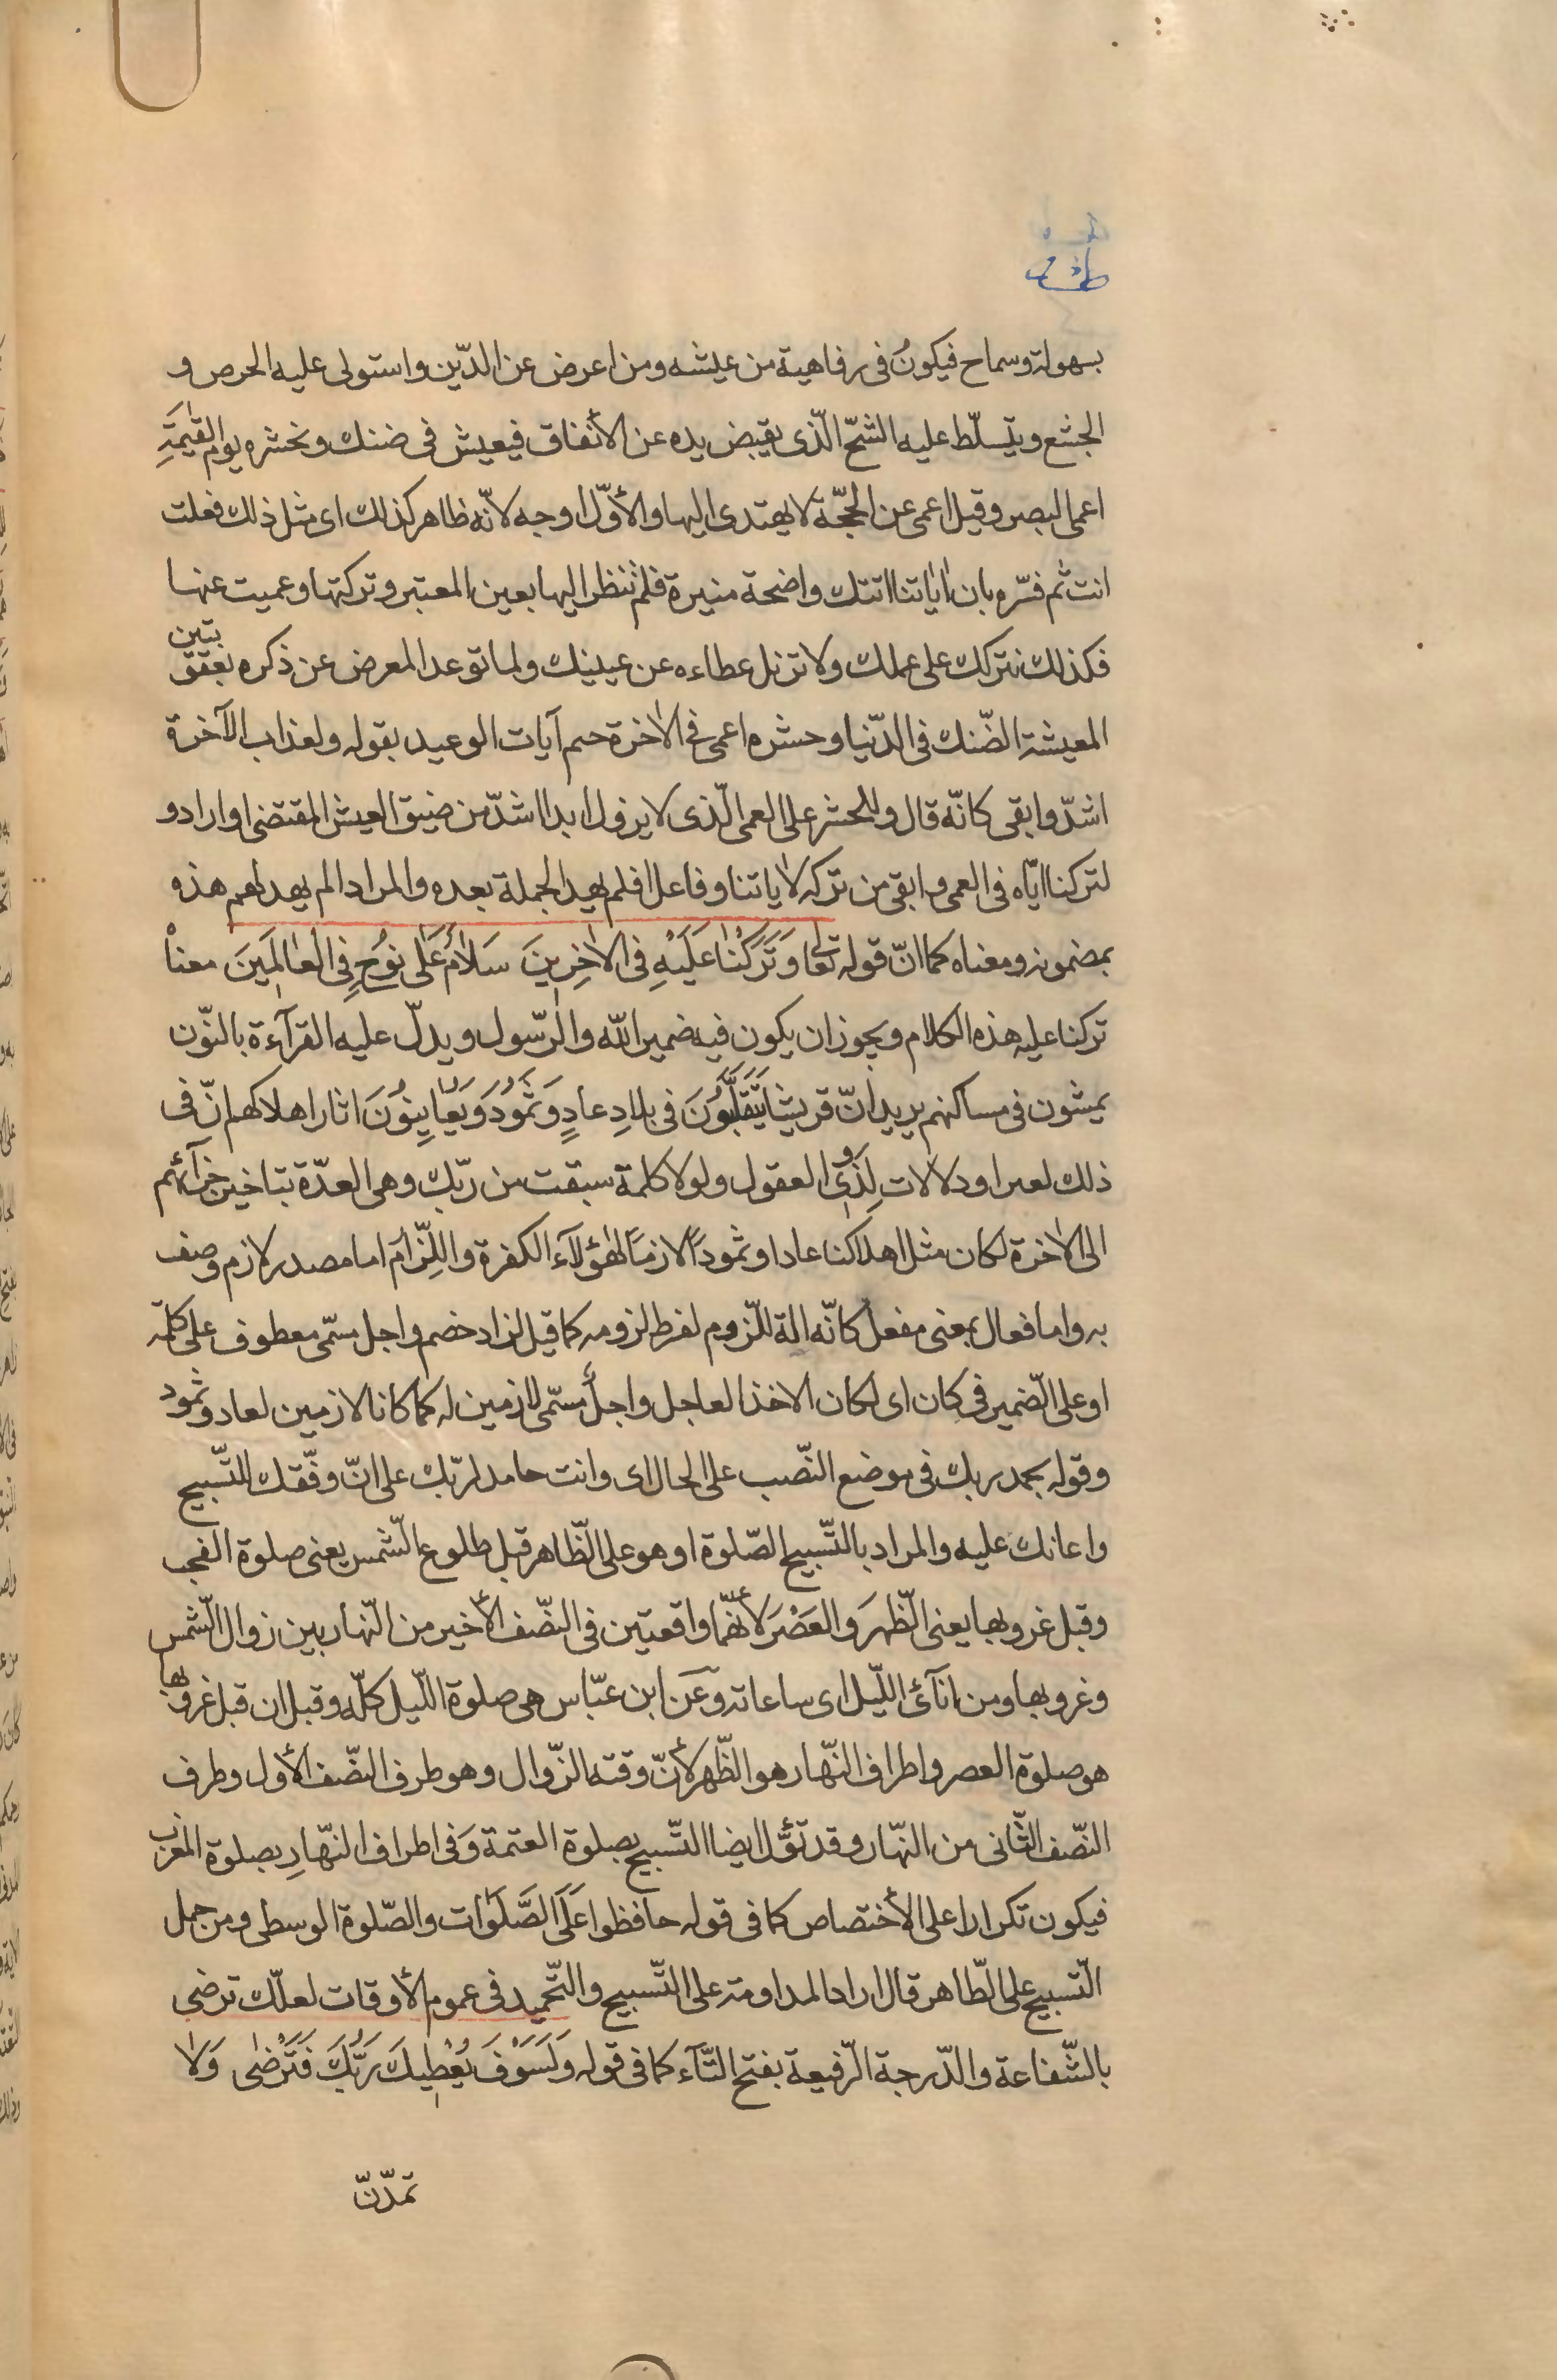 بسهولة وسماح فيكونُ فى رفاهية من عيشه ومن اعرض عن الدّين واستولى عليه الحرص و
الجشع ويتسلّط عليه الشحّ الّذى يقبض يده عن الأنفاق فيعيش فى ضنك ونحشره يوم القيٰمَةِ
اعمى البصر وقيل اعمى عن الحجّة لا يهتدى اليها والأوّل اوجه لانّه ظاهر كذلك اى مثل ذلك فعلت
انت ثم فسّره بان اٰياتنا اتتك واضحة منيرة فلم تنظر اليها بعين المعتبر وتركتها وعميت عنها
فكذلك نتركك على عملك ولا تزل عطاءه عن عينيك ولما توعد المعرض عن ذكره بعقوبتين
المعيشة الضّنك فى الدّنيا وحشره اعمى فى الاٰخرة ختم آيات الوعيد بقوله ولعذاب الآخرة
اشدّ وابقى كانّه قال وللحشر على العمى الّذى لا يزول ابدا اشدّ من ضيق العيش المقتضى او ارادو
لتركنا ايّاه فى العمى وابقى من تركه لاٰياتنا وفاعل افلم يهد الجملة بعده والمراد الم يهد لهم هذه
بمضمونه ومعناه كما انّ قوله تعالى وَتَرَكْنٰا عَلَيْهِ فى الاٰخِرينَ سَلٰامٌ عَلٰى نوُحٍ فِى الْعٰالَمينَ معناْ
تركنا عليه هذه الكلام ويجوز ان يكون فيه ضمير الله والرّسول ويدلّ عليه القرآءة بالنّون
يمشون فى مساكنهم يريد انّ قريشا يَتَقَلَّبُونَ فى بلادِ عادٍ وَثَمُودَ وَيُعٰاينوُنَ اثار اهلاكهم انّ فى
ذلك لعبرا ودلالات لِذَوى العقول ولولا كلمة سبقت من ربّك وهى العدّة بتاخير جزآئهم
الى الاٰخرة لكان مثل اهلاكنا عادا وثموداً لازماً لهٰؤلآء الكفرة واللِّزام اما مصدر لازم وصف
به واما فعال بمعنى مفعل كانّه الة للّزوم لفرط لزومه كما قيل لزاد خصم واجل مسمّى معطوف على كلمة
او على الضّمير فى كان اى لكان الاخذ العاجل واجلٌ مسمّى لازمين له كما كانا لازمين لعاد وثمود
وقوله بحمد ربك فى موضع النّصب على الحال اى وانت حامد لربّك على انّ وفّقك للتّسبيح
واعانك عليه والمراد بالتّسبيح الصّلوة او هو على الظّاهر قبل طلوع الشّمس يعنى صلوة الفجر
وقبل غروبها يعنى الظّهرَ والعَصْرَ لأنّهما واقعتين فى النصّف الأخير من النّهار بين زوال الشّمس
وغروبها ومن اٰنآئ اللّيل اى ساعاته وعَن ابن عبّاس هى صلوة اللّيل كلّه وقيل ان قبل غروبها
هو صلوة العصر واطراف النّهار هو الظّهر لأنّ وقته الزّوال وهو طرف النصّف الأول وطرف
النّصف الثّانى من النّهار وقد تؤّل ايضا التّسبيح بصلوة العتمة وَفى اطراف النّهارِ بصلوة المغرب
فيكون تكرارا على الأختصاص كما فى قوله حافظوا عَلَى الصَّلَوٰات والصّلوة الوسطى ومن حمل
التّسبيح على الظّاهر قال اراد المداومة على التّسبيح والتّحميد فى عموم الأوقات لعلّك ترضى
بالشّفاعة والدّرجة الرّفيعة بفتح التّآء كما فى قوله وَلَسَوْفَ يُعْطيكَ رَبُّكَ فَتَرْضٰى وَلٰا
تمدّنّ